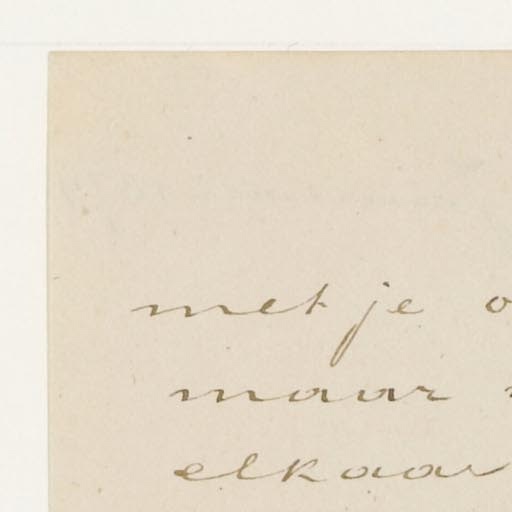 met je
maar
elkaar